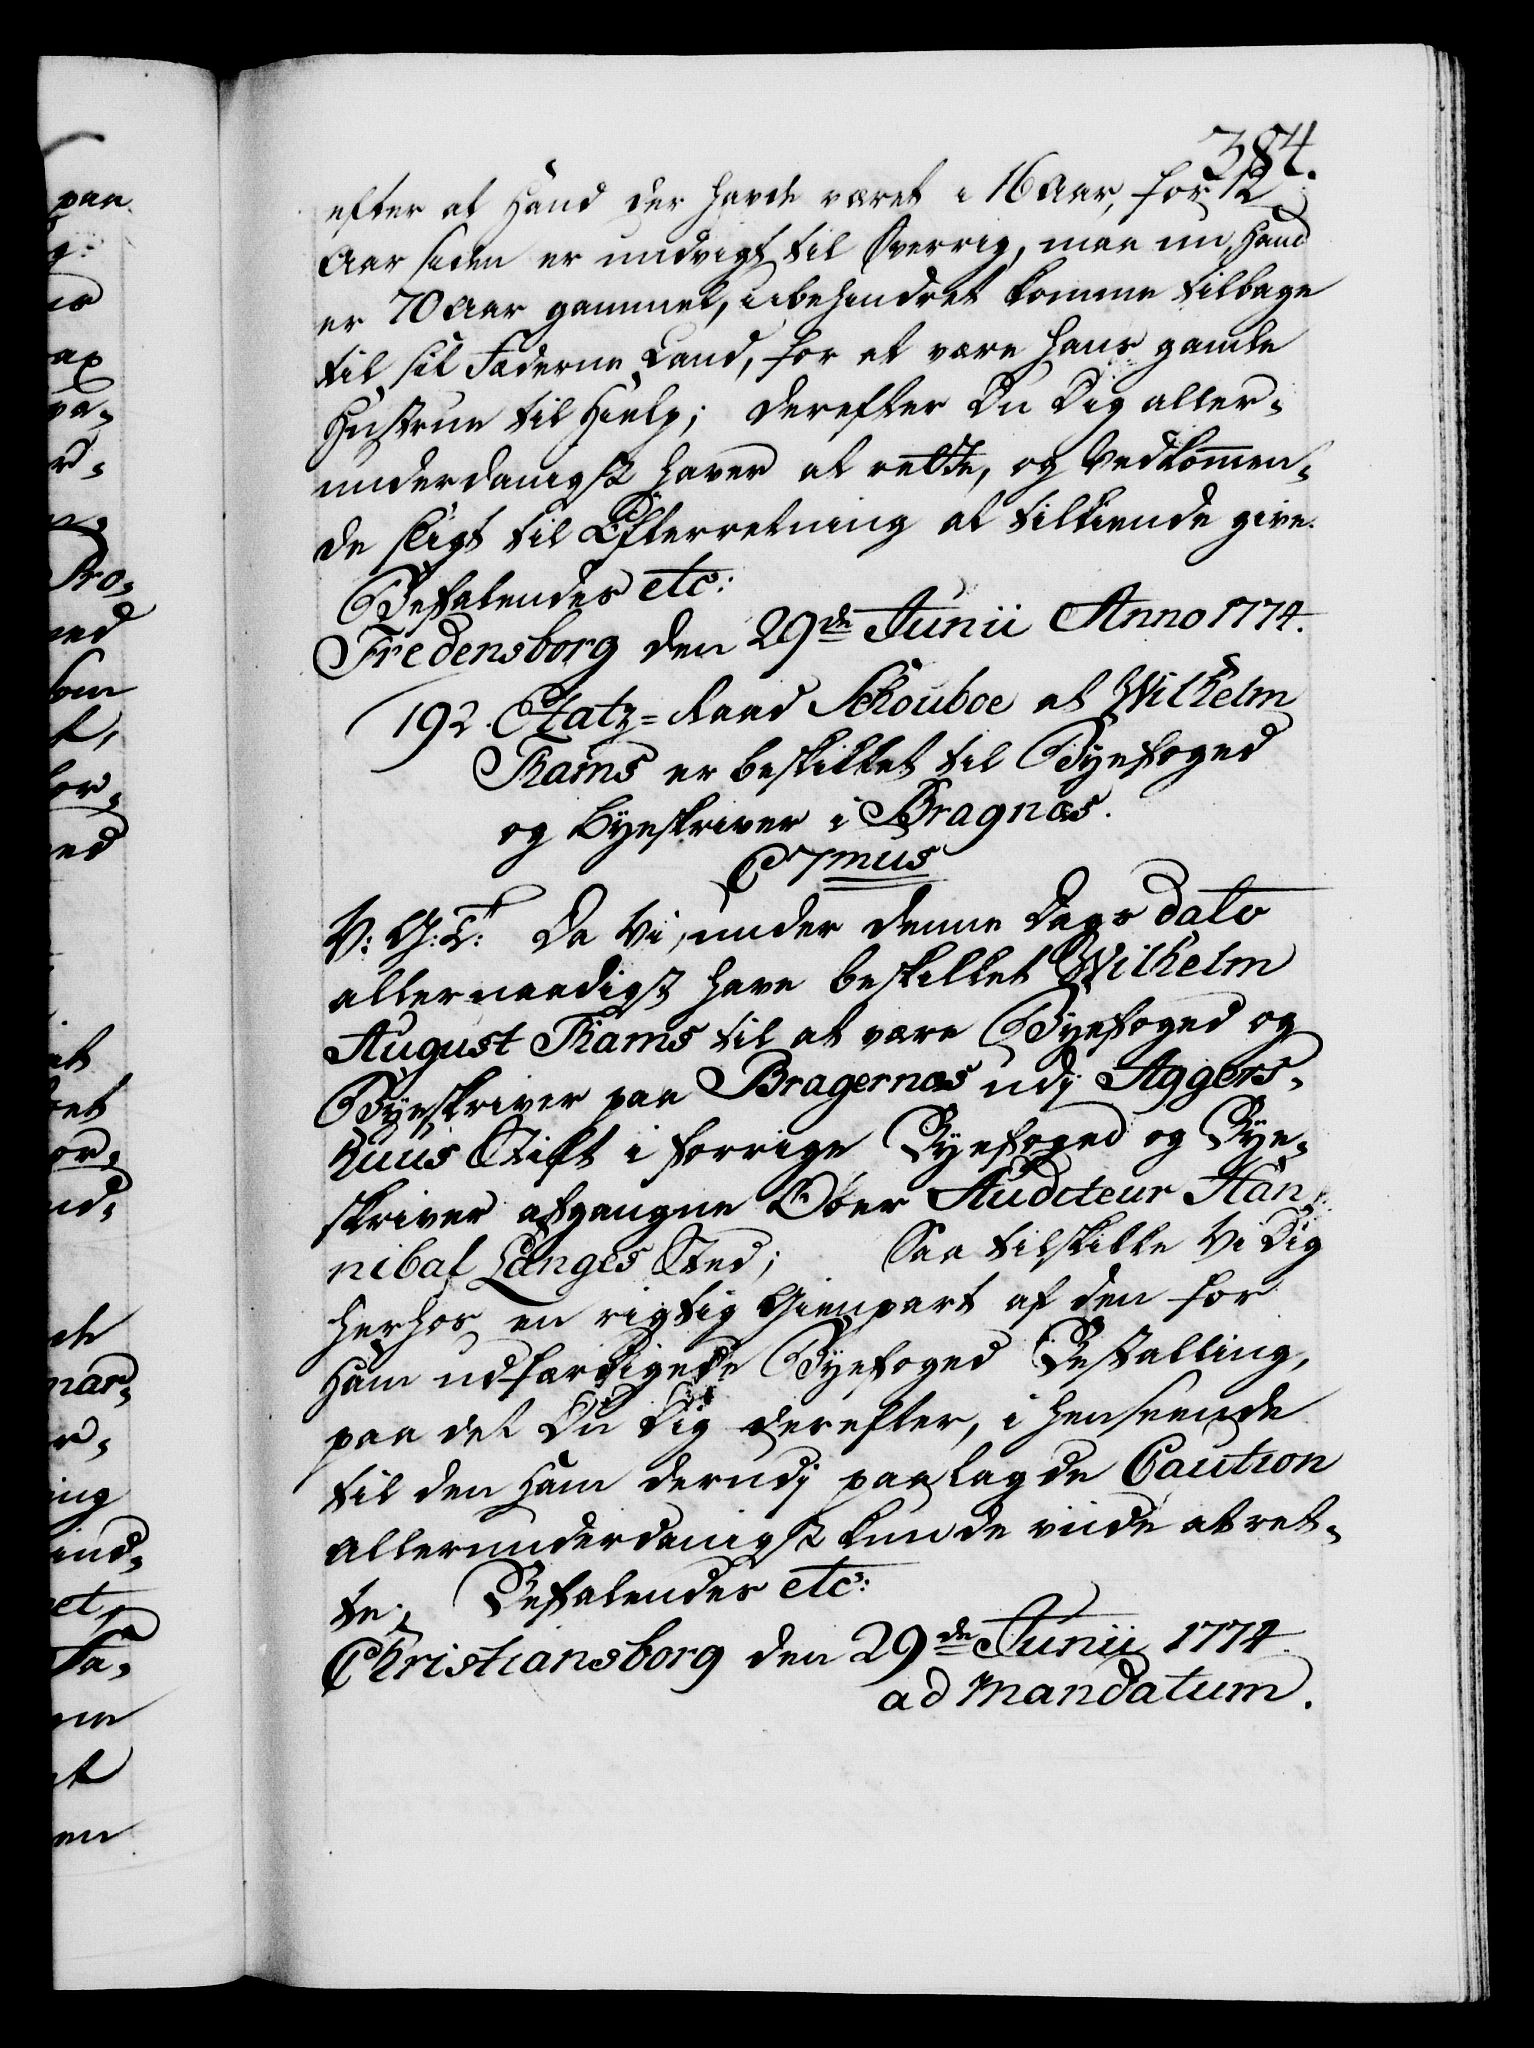 384.
efter at Hand der havde været i 16 Aar, for 12
Aar siden er undvigt til Sverrig, maa nu, Hand
er 70 Aar gammel, ubehindret komme tilbage
til sit Fæderne Land, for at være hans gamle
Hustrue til Hielp; derefter Du Dig aller-
underdanigst haver at rette, og Vedkommen-
de sligt til Efterretning at tilkiende give.
Befalendes etc:
Fredensborg den 29de Junii Anno 1774.
192. Etatz-Raad Schouboe at Wilhelm
Thams er beskikket til Byefoged
og Byeskriver i Bragnæs.
C 7mus
V: G: T: Da Vi, under denne Dags dato
allernaadigst have beskikket Wilhelm
August Thams til at være Byefoged og
Byeskriver paa Bragernæs udj Aggers-
huus Stift i forrige Byefoged og Bye-
skriver afgangne Ober Auditeur Han-
nibal Langes Sted; Saa tilskikke Vi Dig
herhos en rigtig Gienpart af den for
Ham udfærdigede Byefoged Bestalling,
paa det Du Dig derefter, i henseende
til den Ham derudj paalagde Caution
allerunderdanigst kunde viide at ret-
te. Befalendes etc:
Christiansborg den 29de Junii 1774.
ad Mandatum.
paa
ned
som
ed
et
nar-
ing
ind-
et,
en